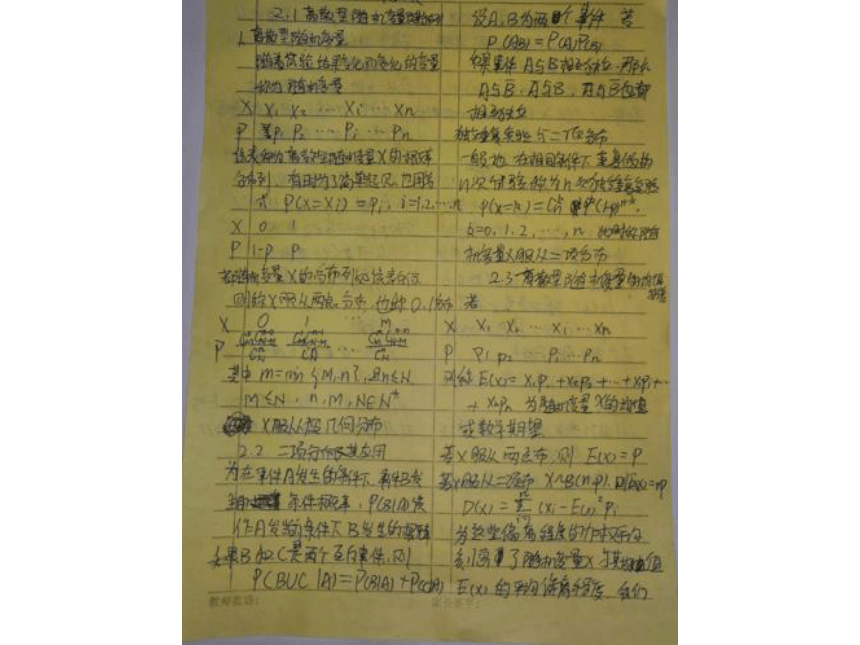 2.1 离散型随机变量
1. 离散型随机变量
随着实验结果变化而变化的变量
称为随机变量
X X₁ X₂ … Xi … Xn
P P₁ P₂ … Pi … Pn
该表称为离散型随机变量X的概率
分布列，有时为了简单起见，也用等
式 P(X=Xi)=Pi, i=1,2,…,n
X 0 1
P 1-p p
若随机变量X的分布列如该表
则称X服从两点分布，也称0,1分布
X 0 1 … m
P
其中 m=min{M,n}, 且n≤N
M≤N, n,M,N∈N*
X服从超几何分布
2.2 二项分布及其应用
为在事件A发生的条件下，事件B发
条件概率，P(B|A)读
作A发生的条件下B发生的概率
如果B和C是两个互斥事件，则
P(BUC|A)=P(B|A)+P(C|A)
教师批语：
设A,B为两个事件 若
P(AB)=P(A)P(B)
如果事件A与B相互独立，那么
A与B̄, Ā与B, Ā与B̄也都
相互独立
独立重复实验与二项分布
一般地，在相同条件下重复做的
n次试验称为n次独立重复实验
k=0,1,2,…,n 此时称随
机变量X服从二项分布
2.3 离散型随机变量的均值
若
X X₁ X₂ … Xi … Xn
P P₁ P₂ Pi … Pn
则称 E(X)=X₁P₁+X₂P₂+…+XiPi+…
+XnPn 为随机变量X的均值
或数学期望
若X服从两点布，则 E(X)=P
若X服从二项布 X~B(n,p), 则E(X)=np
D(X)=Σ(Xi-E(X))²Pi
为这些偏离程度的加权平均
刻画了随机变量X与其均值
E(X)的平均偏离程度，我们
家长签字：